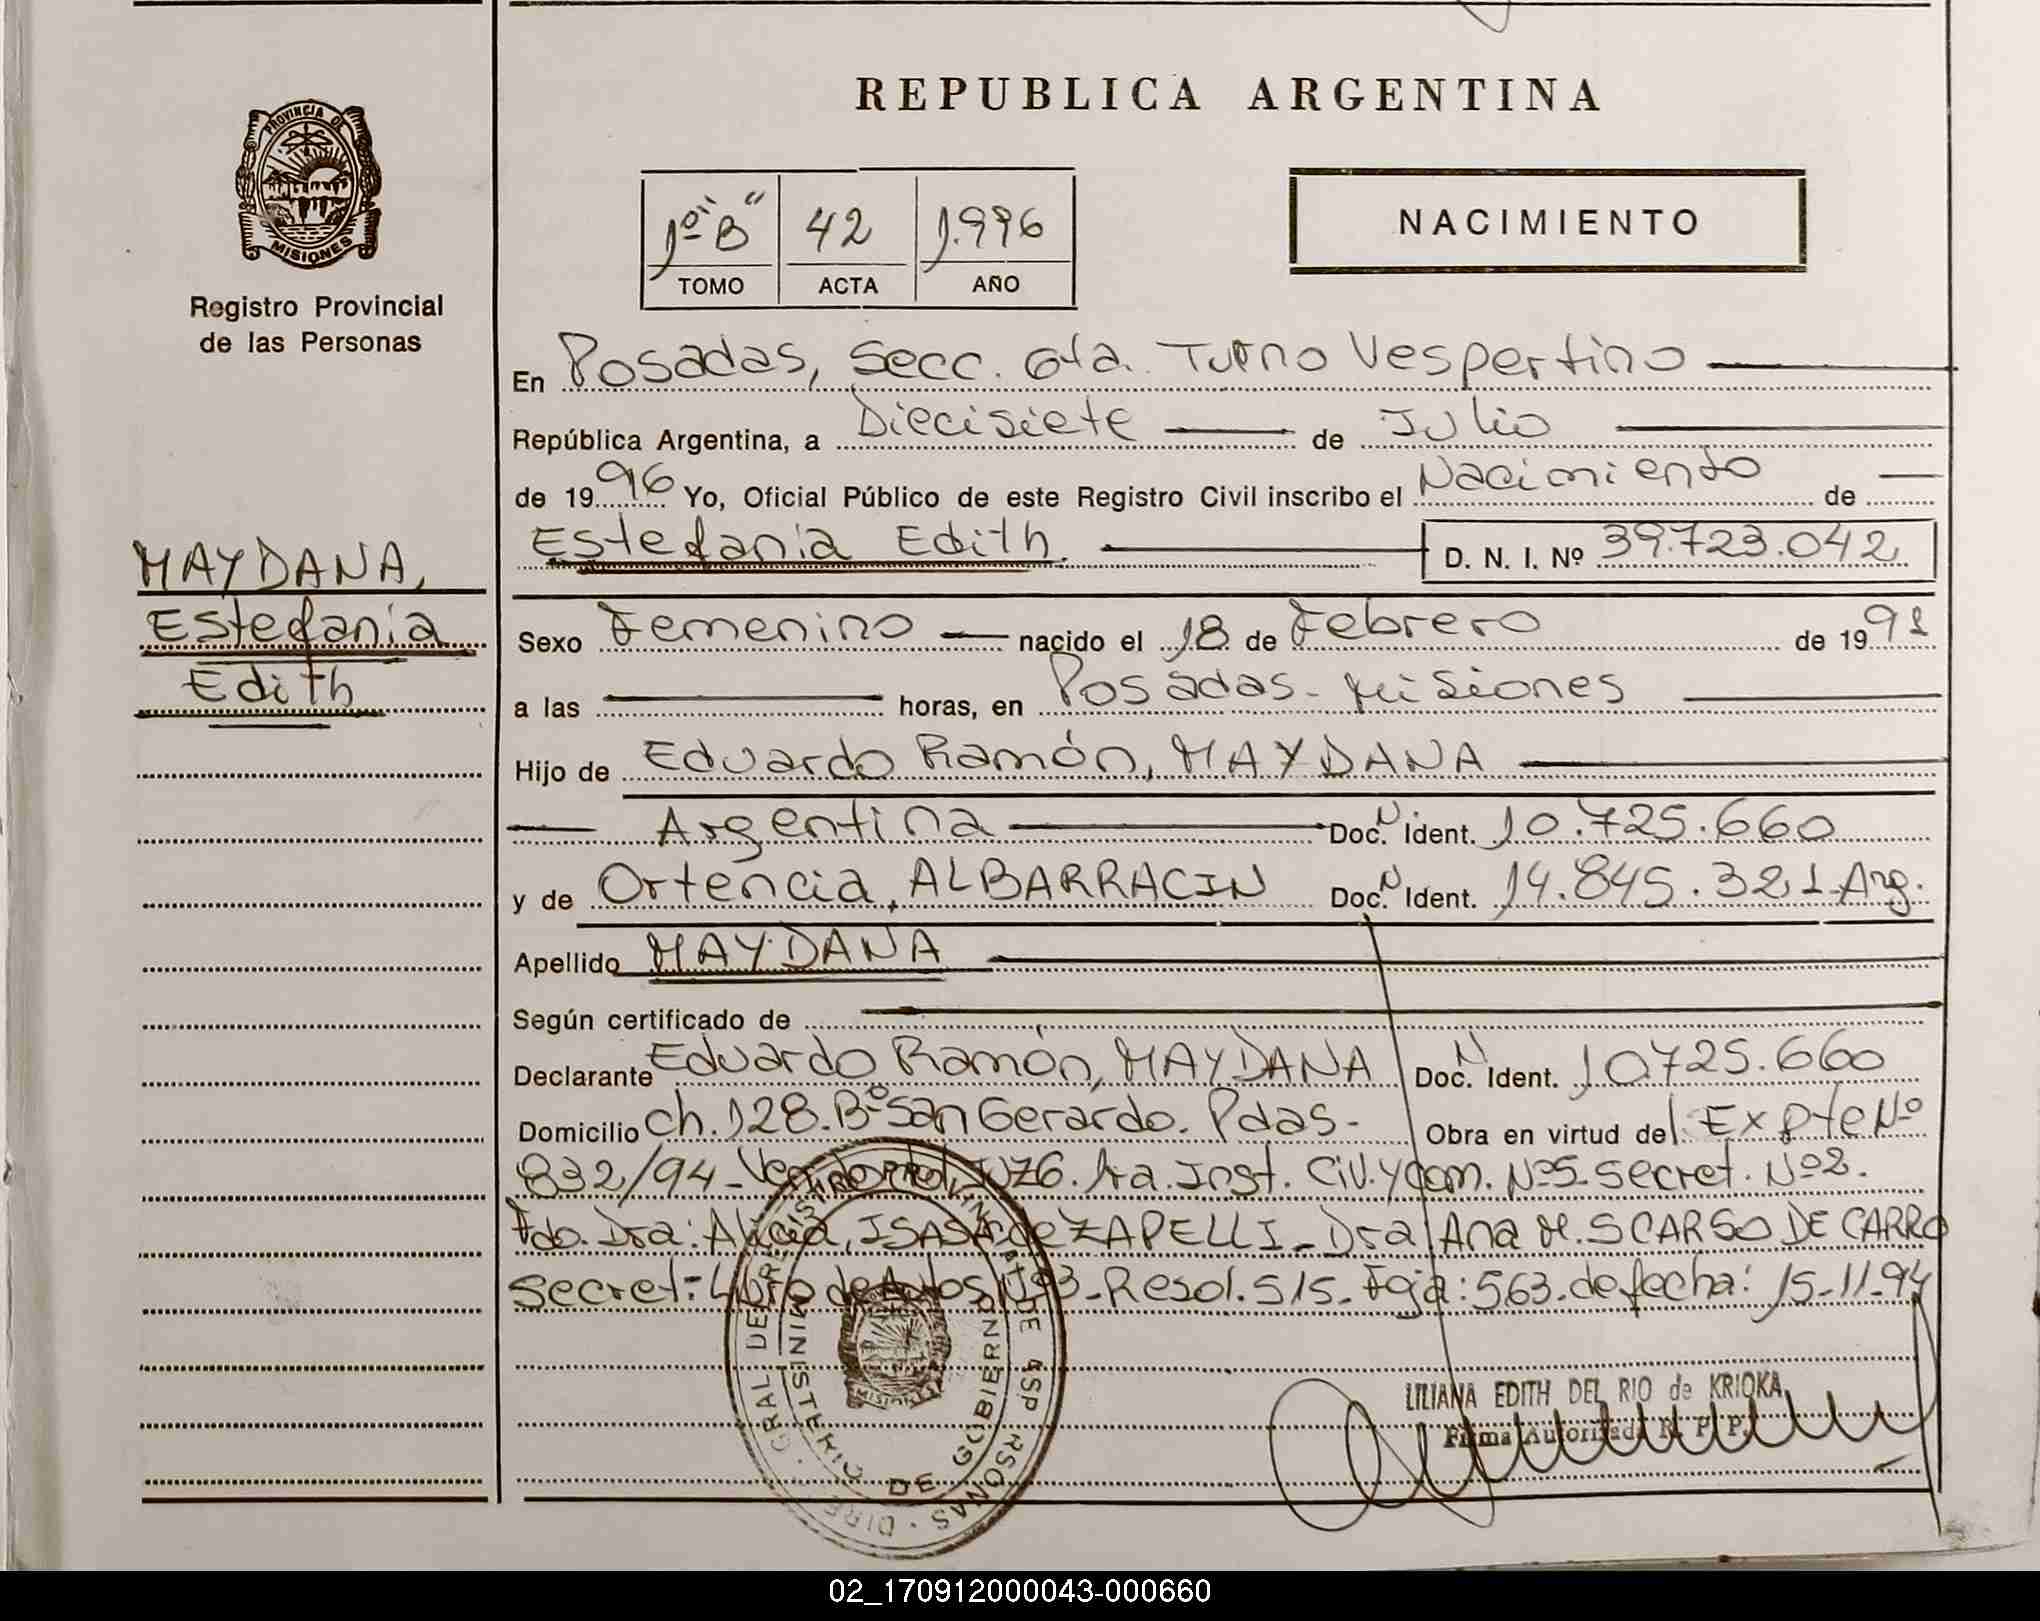 REPUBLICA ARGENTINA
PROVINCIA DE
MISIONES
Registro Provincial
de las Personas
1º "B" 42 1.996
TOMO ACTA AÑO
NACIMIENTO
En Posadas, Secc. 6ta. Turno Vespertino
República Argentina, a Diecisiete de Julio
de 1996 Yo, Oficial Público de este Registro Civil inscribo el Nacimiento de
Estefanía Edith. D. N. I. Nº 39.723.042
MAYDANA,
Estefanía
Edith
Sexo Femenino nacido el 18 de Febrero de 1991
a las horas, en Posadas - Misiones
Hijo de Eduardo Ramón, MAYDANA
Argentina Doc. N. Ident. 10.725.660
y de Ortencia, ALBARRACIN Doc. N. Ident. 14.845.321 Arg.
Apellido MAYDANA
Según certificado de
Declarante Eduardo Ramón, MAYDANA Doc. N. Ident. 10.725.660
Domicilio Ch. 128. Bº San Gerardo. Pdas- Obra en virtud del Expte Nº
832/94 - Juzg. 1ra. Inst. Civ. y Com. Nº5 - Secret. Nº2.
Fdo. Dra: Alicia, de ZAPELLI - Dra Ana M. SCARSO DE CARRO
Secret: Libro de Autos Nº3 - Resol. 515 - Foja: 563. de fecha: 15-11-94
LILIANA EDITH DEL RIO de KRIOKA
Firma Autorizada R. P. P.
MINISTERIO DE GOBIERNO
MISIONES
02_170912000043-000660